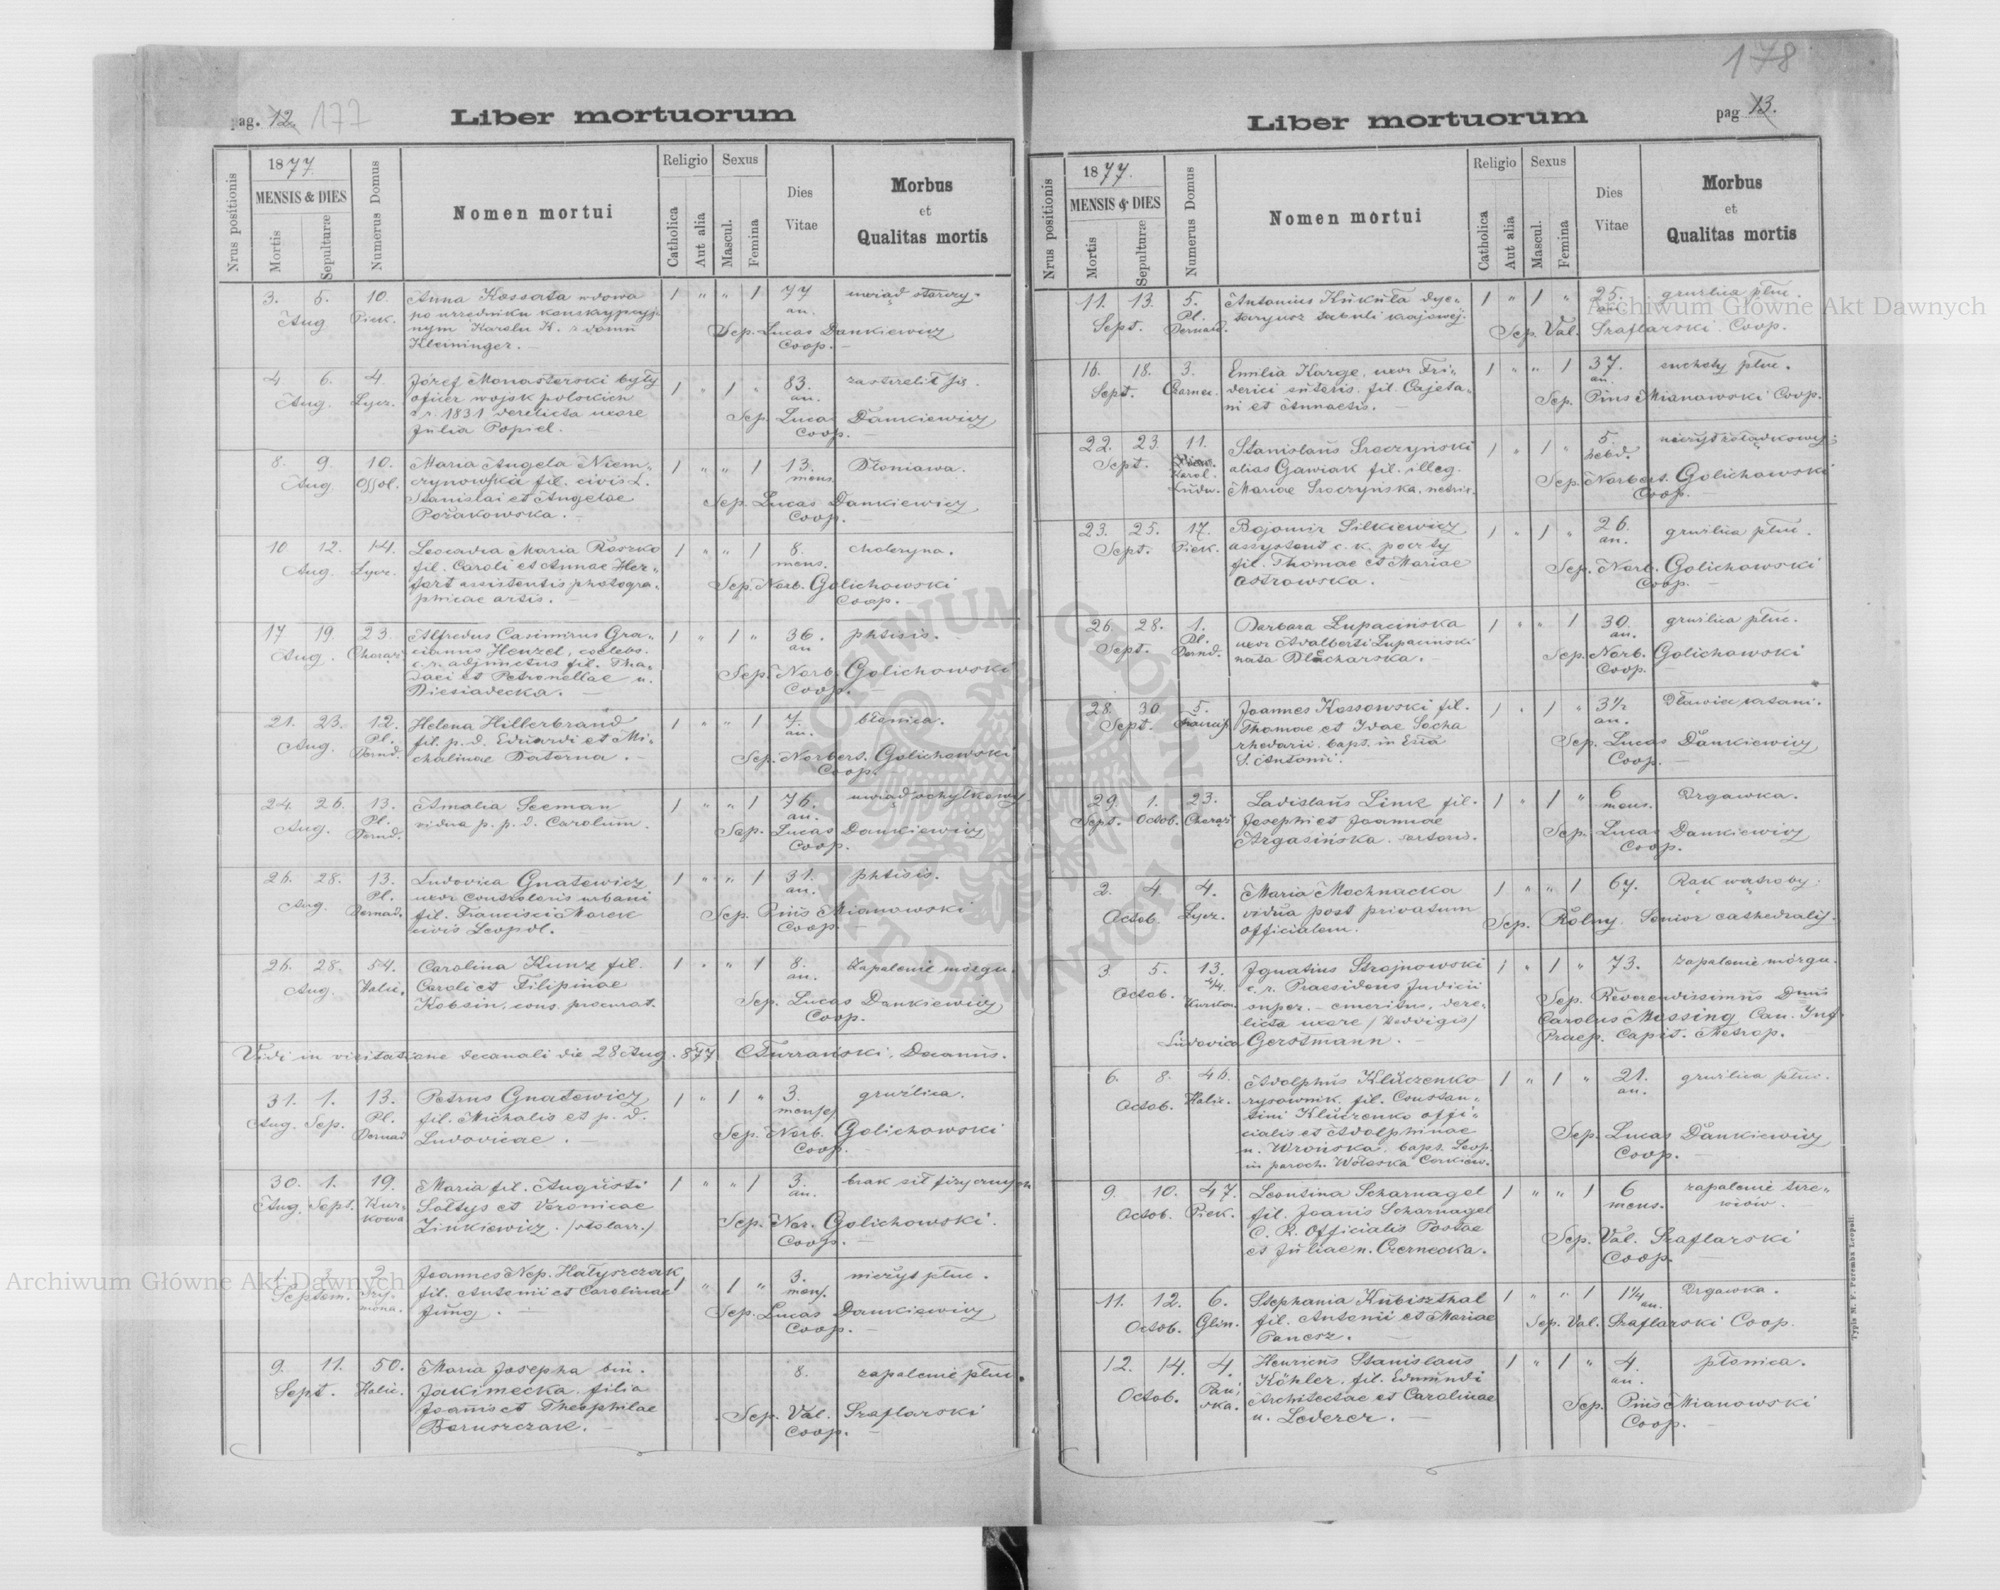 178
pag. 12. 177
Liber mortuorum
Nrus positionis
1877.
MENSIS & DIES
Mortis
Sepulturæ
Numerus Domus
Nomen mortui
Religio
Catholica
Aut alia
Sexus
Mascul.
Femina
Dies
Vitae
Morbus
et
Qualitas mortis
3. 5. 10. Anna Kossorta wdowa 1 " " 1 77 uwiąd starczy.
Aug Piek. po urzedniku konskrypcyj- an.
nym Karolu K. z domu Sep. Lucas Dankiewicz
Kleininger. Coop.
4. 6. 4. Józef Monasterski były 1 " 1 " 83. zastrzelił się.
Aug. Lycz. oficer wojsk polskich an.
z r. 1831 derelicta uxore Sep. Lucas Dankiewicz
Julia Popiel. Coop.
8. 9. 10. Maria Angela Niem- 1 " " 1 13. Dłoniawa.
Aug Ossol. czynowska fil. civis L. mens.
Stanislai et Angelae Sep. Lucas Dankiewicz
Pożakowska. Coop.
10. 12. 14. Leocadia Maria Raszko 1 " " 1 8. choleryna.
Aug. Lycz. fil. Caroli et Annae Her- mens.
fart assistentis photogra- Sep. Norb. Golichowski
phicae artis. Coop.
17 19. 23. Alfredus Casimirus Gra- 1 " 1 " 36. phtisis.
Aug. Chorąż. cianus Henzel, coelebs. an
c. r. adjunctus fil. Tha- Sep. Norb. Golichowski
daei et Petronellae n. Coop.
Biesiadecka.
21. 23. 12. Helena Hillerbrand 1 " " 1 7. błonica.
Aug. Pl. fil. p. d. Eduardi et Mi- an.
Bernd. chalinae Baterna. Sep. Norbert. Golichowski
Coop.
24. 26. 13. Amalia Seeman 1 " " 1 76. uwiąd schyłkowy
Aug. Pl. vidua p. p. d. Carolum. an.
Bernd. Sep. Lucas Dankiewicz
Coop.
26. 28. 13. Ludovica Gnatewicz 1 " " 1 31. phtisis.
Aug. Pl. uxor consularis urbani an.
Bernad. fil. Francisci Marek Sep. Pius Mianowski
civis Leopol. Coop.
26. 28. 54. Carolina Kunz fil. 1 " " 1 8. zapalenie mózgu.
Aug. Halic. Caroli et Filipinae an.
Kobsin, cons. procurat. Sep. Lucas Dankiewicz
Coop.
Vidi in visitatione decanali die 28 Aug. 877. Decanus.
31. 1. 13. Petrus Gnatewicz 1 " 1 " 3. gruźlica.
Aug. Sep. Pl. fil. Michalis et p. d. menses
Bernad Ludovicae. Sep. Norb. Golichowski
Coop.
30. 1. 19. Maria fil. Augusti 1 " " 1 3. brak sił fizycznych
Aug. Sept. Kur- Sołtys et Veronicae an.
kowa Zinkiewicz. /stolarz./ Sep. Nor. Golichowski.
Coop.
1. 3. 2. Joannes Nep. Hałyszczak 1 " 1 " 3. nieżyt płuc.
Septem. Szy- fil. Antonii et Carolinae mens.
mona. Jung. Sep. Lucas Dankiewicz
Coop.
9. 11. 50. Maria Josepha bin. 8. zapalenie płuc.
Sept. Halic. Jakimecka filia
Joannis et Theophilae Sep. Val. Szaflarski
Boruszczak. Coop.
Liber mortuorum
pag 13.
Nrus positionis
1877.
MENSIS & DIES
Mortis
Sepulturæ
Numerus Domus
Nomen mortui
Religio
Catholica
Aut alia
Sexus
Mascul.
Femina
Dies
Vitae
Morbus
et
Qualitas mortis
11. 13. 5. Antonius Kukuła dye- 1 " 1 " 25. gruźlica płuc.
Sept. Pl. taryusz tabuli krajowej. an.
Bernard. Sep. Val. Szaflarski Coop.
16. 18. 3. Emilia Karge, uxor Fri- 1 " " 1 37. suchoty płuc.
Sept. Czarnec. derici sutoris. fil. Cajeta- an.
ni et Annaetis. Sep. Pius Mianowski Coop.
22. 23. 11. Stanislaus Sroczyński 1 " 1 " 5. nieżyt żołądkowy.
Sept. Karol. alias Gawiak fil. illeg. hebd.
Ludw. Mariae Sroczyńska. Sep. Norbert. Golichowski
Coop.
23. 25. 17. Bojomir Silkiewicz 1 " 1 " 26. gruźlica płuc.
Sept. Piek. assystent c. k. poczty an.
fil. Thomae et Mariae Sep. Norb. Golichowski
Ostrowska. Coop.
26. 28. 1. Barbara Łupacińska 1 " " 1 30. gruźlica płuc.
Sept. Pl. uxor Adalberti Łupaciński an.
Bernd. nata Blacharska. Sep. Norb. Golichowski
Coop.
28. 30 5. Joannes Kossowski fil. 1 " 1 " 3½ Dławiec krtani.
Sept. Thomae et Idae Socha an.
rhedarii bapt. in Ecla Sep. Lucas Dankiewicz
S. Antonii. Coop.
29. 1. 23. Ladislaus Link fil. 1 " 1 " 6 Drgawka.
Sept. Octob. Chorąż. Josephi et Joannae mens.
Argasińska. sartoris. Sep. Lucas Dankiewicz
Coop.
2. 4. 4. Maria Mochnacka 1 " " 1 67. Rak wątroby.
Octob. Lycz. vidua post privatum
officialem. Sep. Rolny. Senior cathedralis.
3. 5. 13. Ignatius Strojnowski 1 " 1 " 73. zapalenie mózgu.
Octob. c. r. Praesidens Judicii
Kurkow. super. emeritus, dere- Sep. Reverendissimus Dnus
licta uxore /Hedvigis/ Carolus Mossing Can. Inf.
Ludovica Gerstmann. Praep. Capit. Metrop.
6. 8. 46. Adolphus Kluczenko 1 " 1 " 21. gruźlica płuc.
Octob. Halic. rysownik fil. Constan- an.
tini Kluczenko offi-
cialis et Adolphinae Sep. Lucas Dankiewicz
n. Wrońska, bapt. Leop. Coop.
in paroch. Wołoska Cerkiew.
9. 10. 47. Leontina Scharnagel 1 " " 1 6 zapalenie trze-
Octob. Piek. fil. Joanis Scharnagel mens. wiów.
C. R. Officialis Postae Sep. Val. Szaflarski
et Juliae n. Czernecka. Coop.
11. 12. 6. Stephania Kubiszthal 1 " " 1 1¼ Drgawka.
Octob. Glin. fil. Antonii et Mariae an.
Panesz. Sep. Val. Szaflarski Coop.
12. 14. 4. Henricus Stanislaus 1 " 1 " 4. płonica.
Octob. Pań- Köhler, fil. Edmundi an.
ska. Architectae et Carolinae Sep. Pius Mianowski
n. Lederer. Coop.
Typis M. F. Poremba Leopoli.
Archiwum Główne Akt Dawnych
Archiwum Główne Akt Dawnych
ARCHIWUM GŁÓWNE AKT DAWNYCH